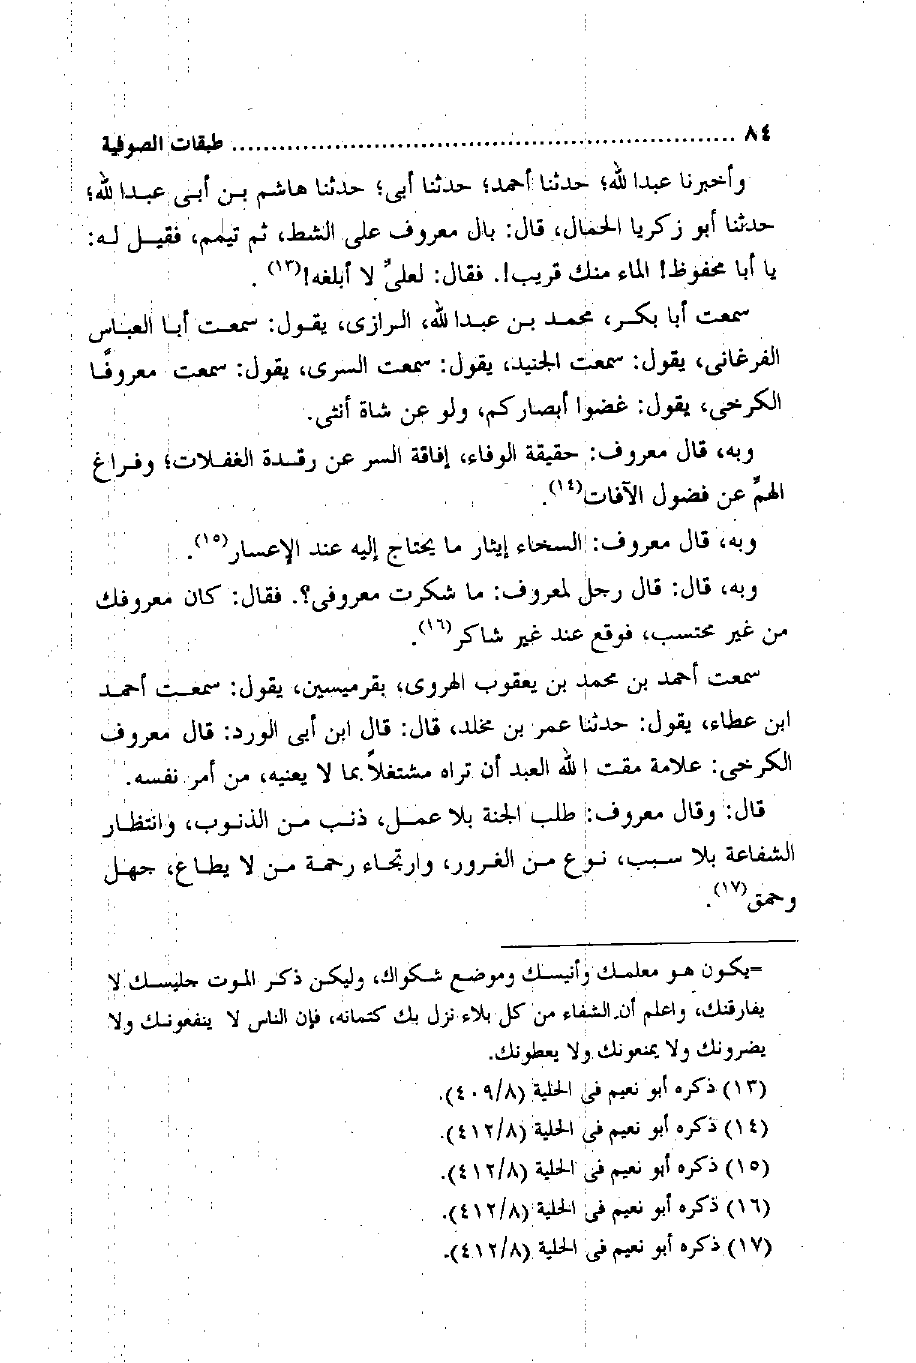 ٨٤ ........................................................ طبقات الصوفية
وأخبرنا عبدا لله؛ حدثنا أحمد؛ حدثنا أبى؛ حدثنا هاشم بن أبى عبدا لله؛
حدثنا أبو زكريا الحمال، قال: بال معروف على الشط، ثم تيمم، فقيل له:
يا أبا محفوظ! الماء منك قريب!. فقال: لعلىِّ لا أبلغه!(١٣) .
سمعت أبا بكر، محمد بن عبدا لله، الرازى، يقول: سمعت أبا العباس
الفرغانى، يقول: سمعت الجنيد، يقول: سمعت السرى، يقول: سمعت معروفًا
الكرخى، يقول: غضوا أبصاركم، ولو عن شاة أنثى.
وبه، قال معروف: حقيقة الوفاء، إفاقة السر عن رقدة الغفلات؛ وفراغ
الهمِّ عن فضول الآفات(١٤).
وبه، قال معروف: السخاء إيثار ما يحتاج إليه عند الإعسار(١٥).
وبه، قال: قال رجل لمعروف: ما شكرت معروفى؟. فقال: كان معروفك
من غير محتسب، فوقع عند غير شاكر(١٦).
سمعت أحمد بن محمد بن يعقوب الهروى، بقرميسين، يقول: سمعت أحمد
ابن عطاء، يقول: حدثنا عمر بن مخلد، قال: قال ابن أبى الورد: قال معروف
الكرخى: علامة مقت ا لله العبد أن تراه مشتغلاً بما لا يعنيه، من أمر نفسه.
قال: وقال معروف: طلب الجنة بلا عمل، ذنب من الذنوب، وانتظار
الشفاعة بلا سبب، نوع من الغرور، وارتجاء رحمة من لا يطاع، جهل
وحمق(١٧).
=يكون هو معلمك وأنيسك وموضع شكواك، وليكن ذكر الموت جليسك لا
يفارقنك، واعلم أن الشفاء من كل بلاء نزل بك كتمانه، فإن الناس لا ينفعونك ولا
يضرونك ولا يمنعونك ولا يعطونك.
(١٣) ذكره أبو نعيم فى الحلية (٤٠٩/٨).
(١٤) ذكره أبو نعيم فى الحلية (٤١٢/٨).
(١٥) ذكره أبو نعيم فى الحلية (٤١٢/٨).
(١٦) ذكره أبو نعيم فى الحلية (٤١٢/٨).
(١٧) ذكره أبو نعيم فى الحلية (٤١٢/٨).